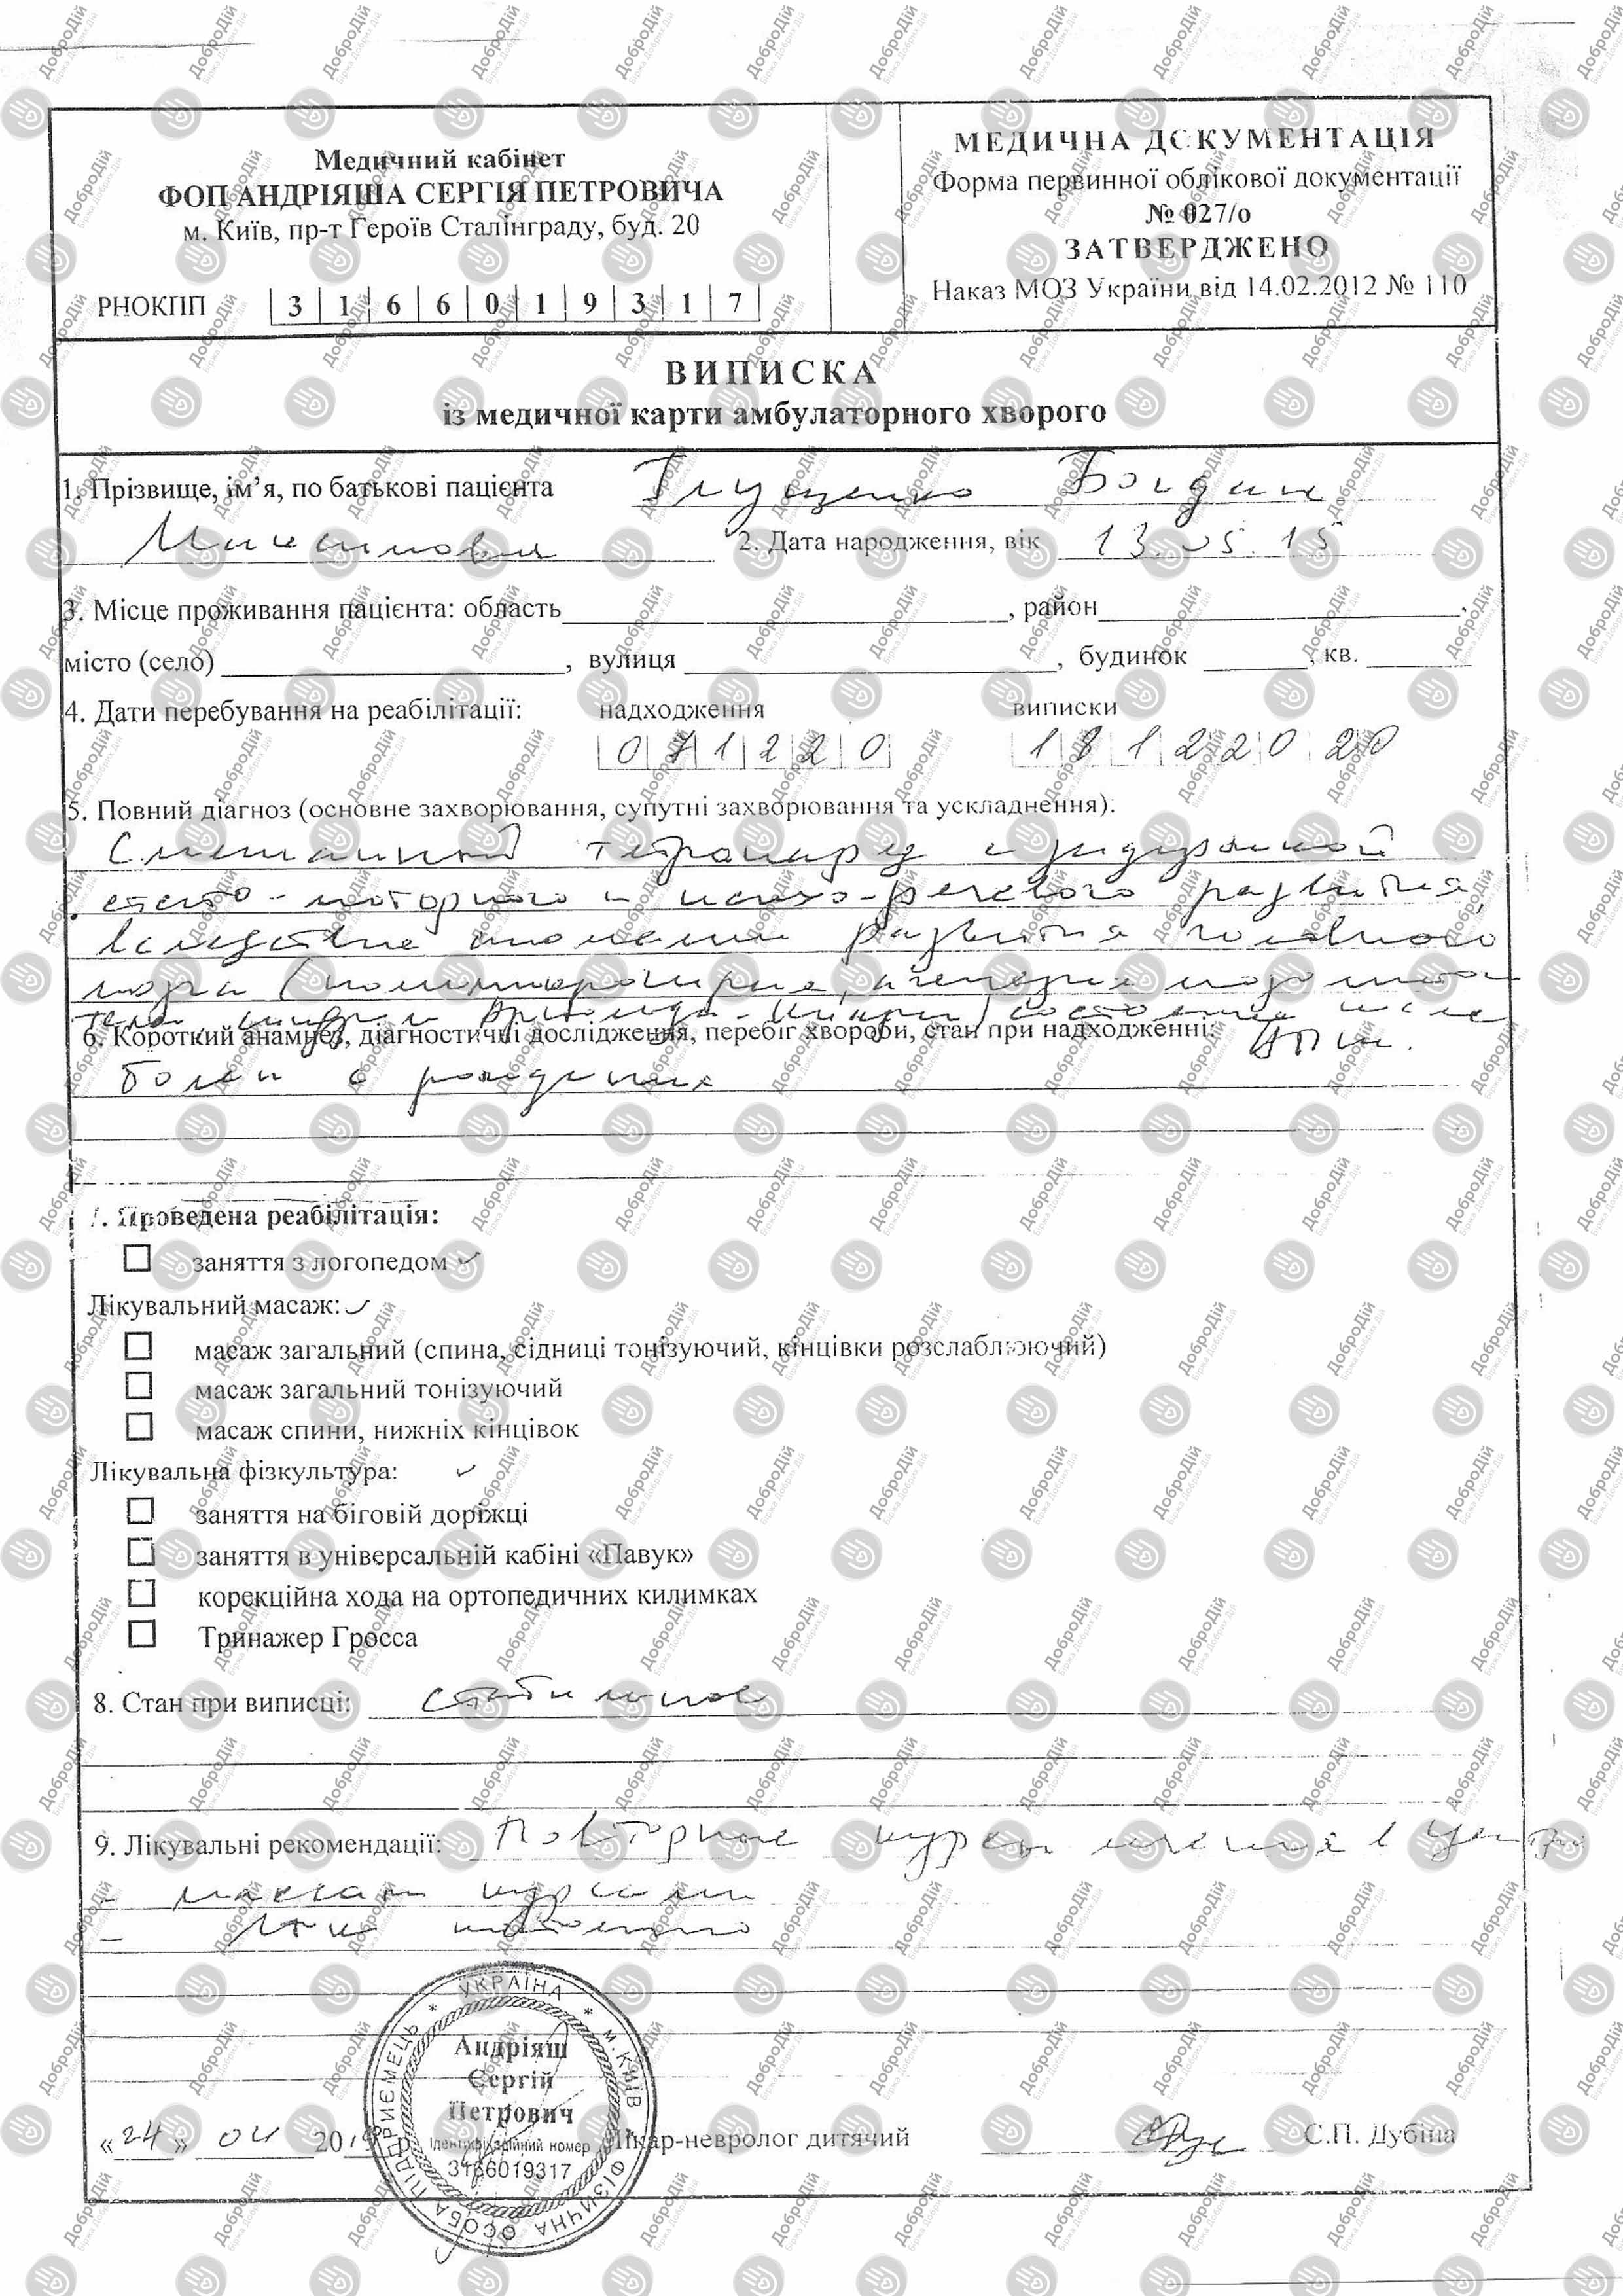 Медичний кабінет
ФОП АНДРІЯША СЕРГІЯ ПЕТРОВИЧА
м. Київ, пр-т Героїв Сталінграду, буд. 20
РНОКПП 3 1 6 6 0 1 9 3 1 7
МЕДИЧНА ДОКУМЕНТАЦІЯ
Форма первинної облікової документації
№ 027/о
ЗАТВЕРДЖЕНО
Наказ МОЗ України від 14.02.2012 № 110
ВИПИСКА
із медичної карти амбулаторного хворого
1. Прізвище, ім’я, по батькові пацієнта Глущенко Богдан
2. Дата народження, вік 13.05.15
3. Місце проживання пацієнта: область , район ,
місто (село) , вулиця , будинок , кв.
4. Дати перебування на реабілітації: надходження виписки
0 7 1 2 2 0 1 8 1 2 2 0 2 0
5. Повний діагноз (основне захворювання, супутні захворювання та ускладнення):
тетрапарез с задержкой
стато-моторного и психо-речевого развития,
вследствие аномалии развития головного
мозга (полимикрогирия, агенезия мозолистого
тела,
6. Короткий анамнез, діагностичні дослідження, перебіг хвороби, стан при надходженні:
Болен с рождения
7. Проведена реабілітація:
заняття з логопедом ✓
Лікувальний масаж: ✓
масаж загальний (спина, сідниці тонізуючий, кінцівки розслаблюючий)
масаж загальний тонізуючий
масаж спини, нижніх кінцівок
Лікувальна фізкультура: ✓
заняття на біговій доріжці
заняття в універсальній кабіні «Павук»
корекційна хода на ортопедичних килимках
Тринажер Гросса
8. Стан при виписці: стабильное
9. Лікувальні рекомендації: Повторные курсы лечения в
- массаж курсами
- постоянно
«24» 04 20 Лікар-невролог дитячий С.П. Дубіна
УКРАЇНА * м. КИЇВ * ФІЗИЧНА ОСОБА ПІДПРИЄМЕЦЬ
Андріяш
Сергій
Петрович
Ідентифікаційний номер
3166019317
ДоброДій
Біржа Добрих Дій